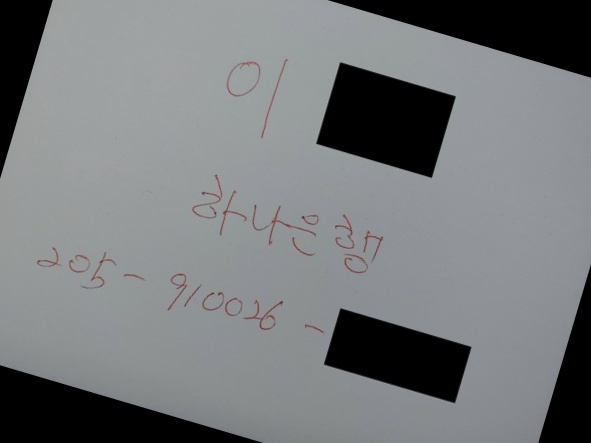 이
하나은행
205-910026-